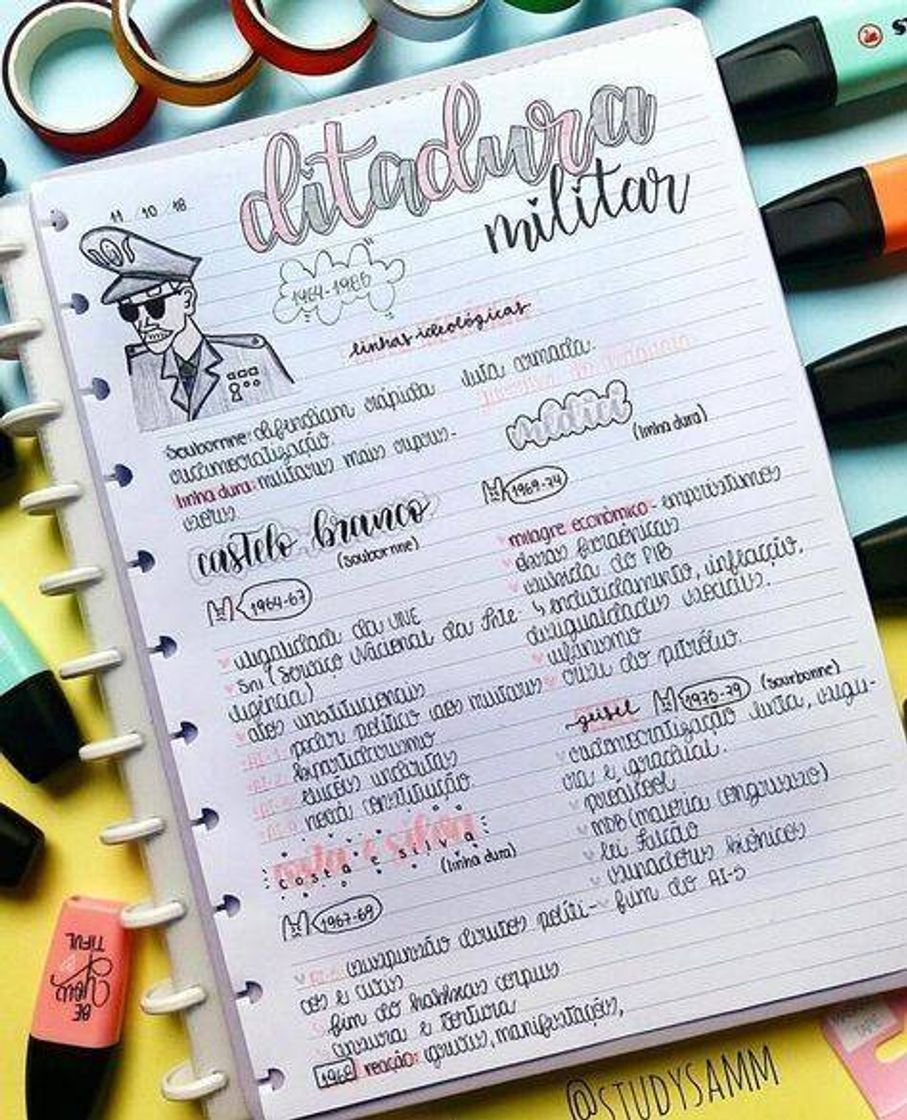 ditadura
militar
11 / 10 / 18
1964-1985
linhas ideológicas
Sourbonne: defendiam rápida
redemocratização
linha dura: militares mais rigoro-
luta armada:
guerrilha do araguaia
castelo branco
(sourbonne)
1964-67
ilegalidade da UNE
SNI (Serviço Nacional da Inte-
ligência)
atos institucionais
AI-1: poder político aos militares
AI-2: bipartidarismo
AI-3: eleições indiretas
AI-4: nova constituição
costa e silva
costa e silva
(linha dura)
1967-69
AI-5: suspensão direitos políti-
cos e civis
fim do habeas corpus
censura e tortura
1968 reação: greves, manifestações,
médici
(linha dura)
1969-74
milagre econômico- empréstimos
obras faraônicas
subida do PIB
↳ endividamento, inflação,
desigualdades sociais.
ufanismo
crise do petróleo
geisel
1975-79
(sourbonne)
redemocratização lenta, segu-
ra e gradual.
proálcool
MDB (maioria congresso)
lei falcão
senadores biônicos
fim do AI-5
@STUDYSAMM
BE
YOU
TIFUL